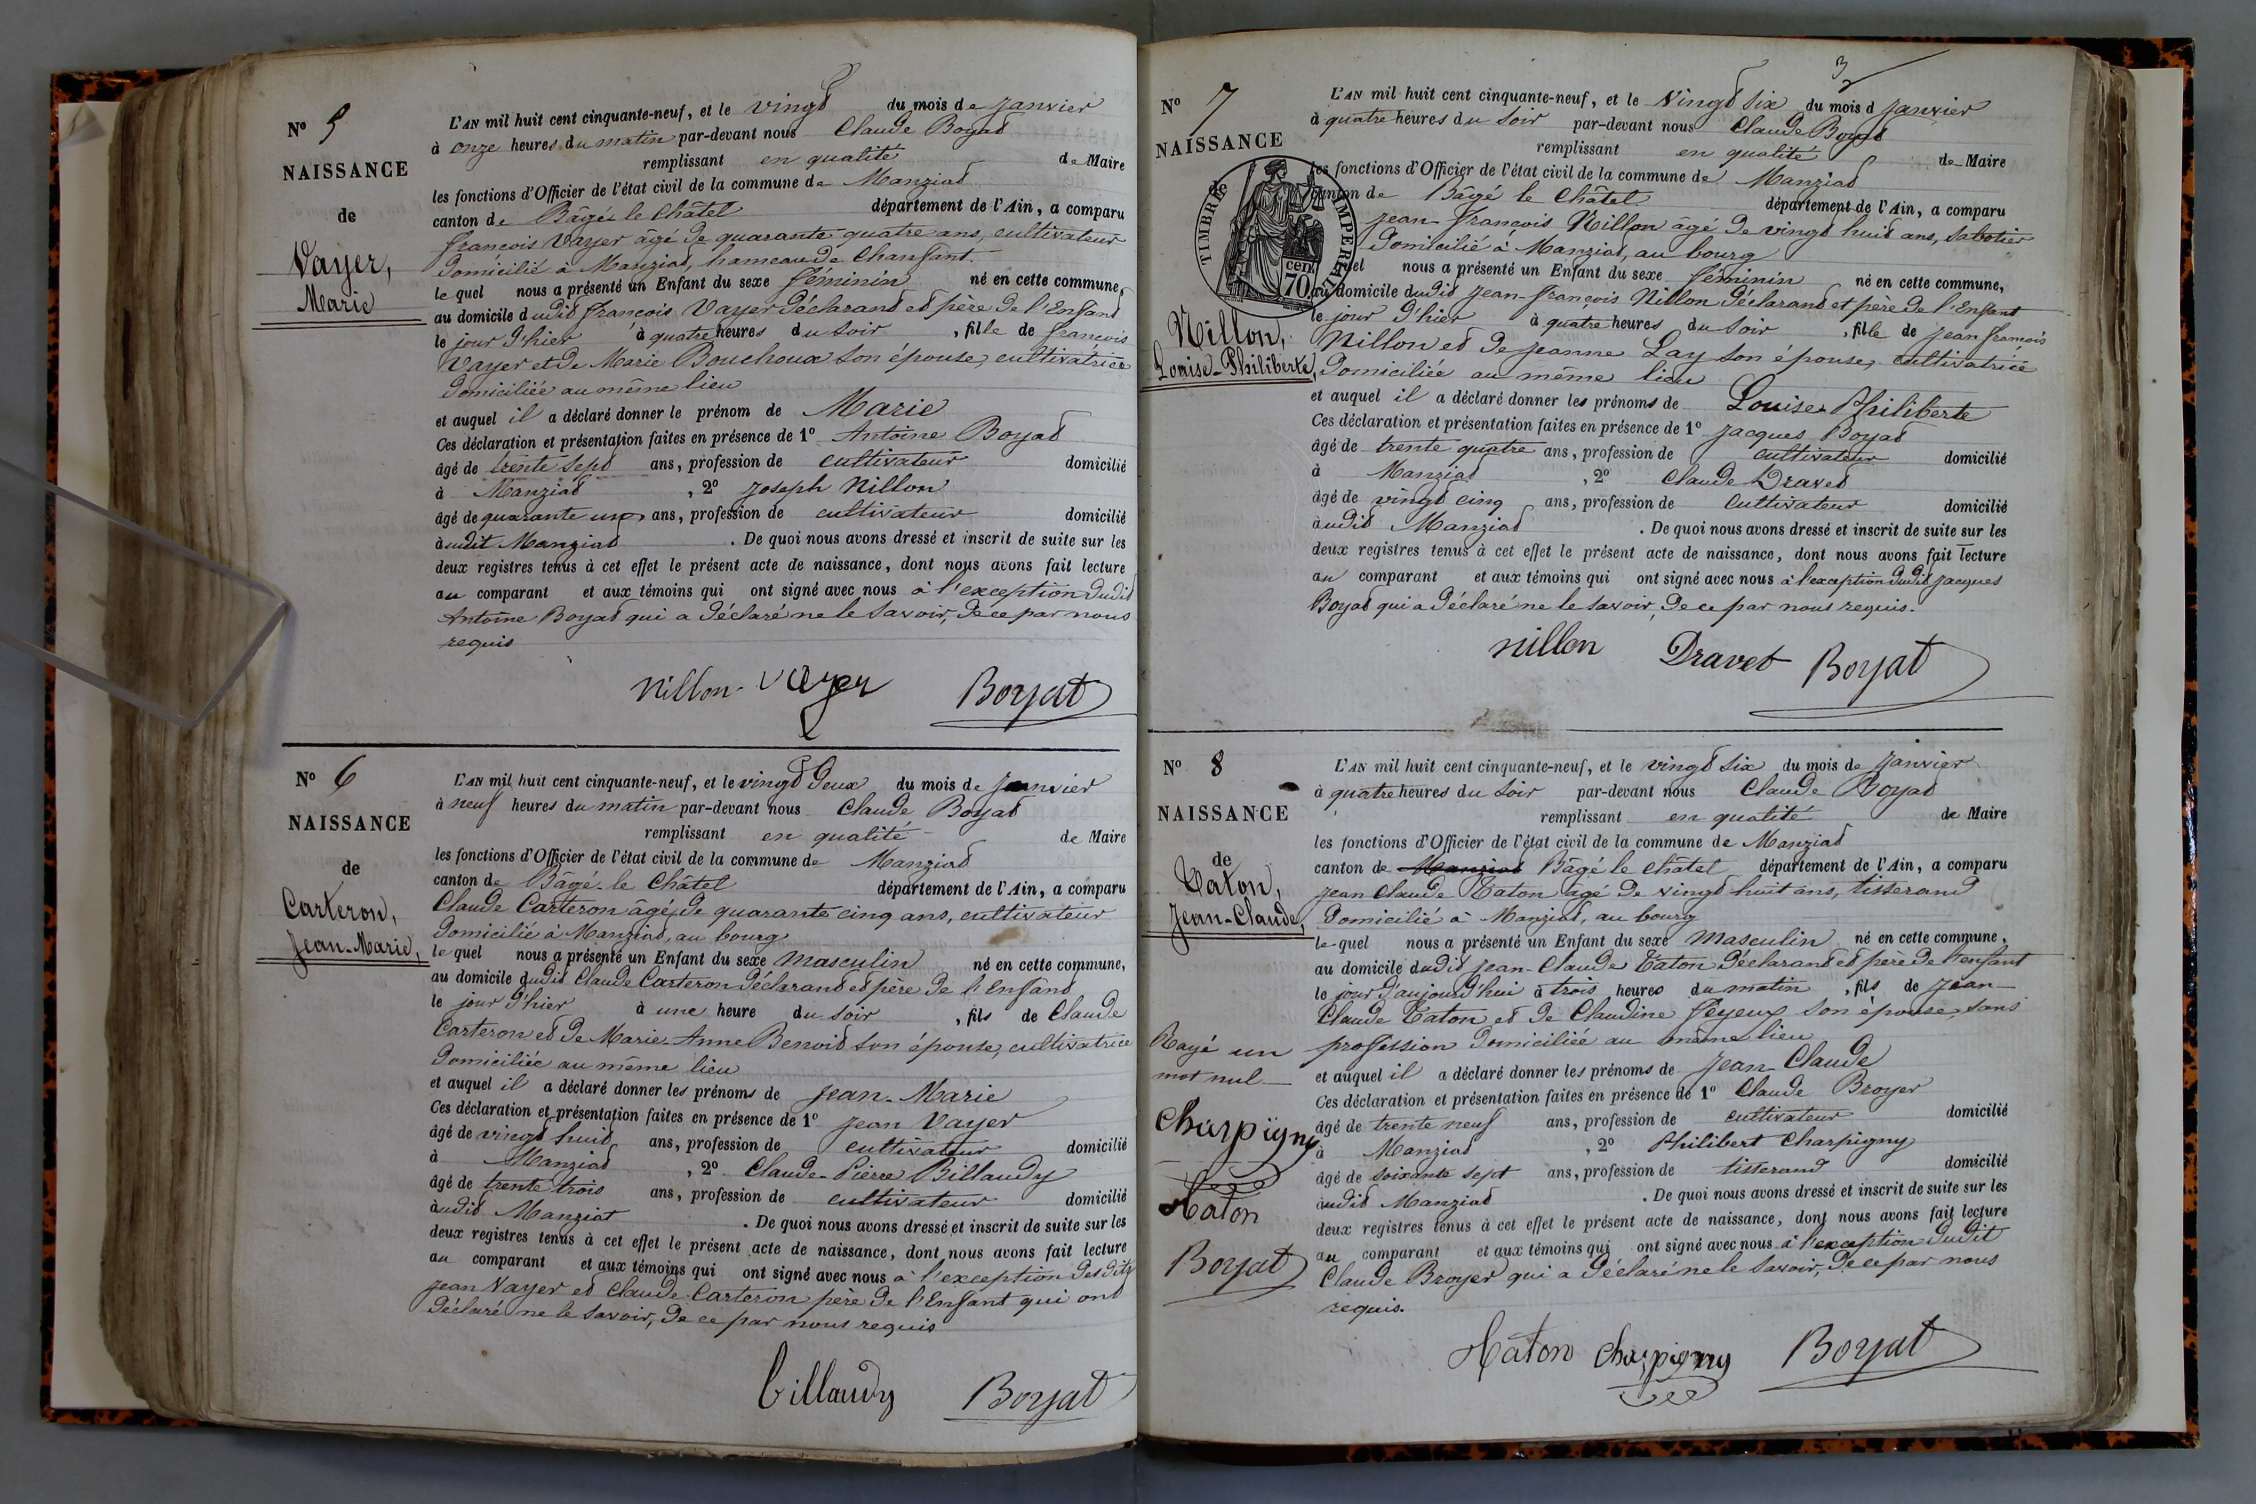 N° 5
NAISSANCE
de
Vayer,
Marie
L'AN mil huit cent cinquante-neuf, et le vingt du mois de janvier
à onze heures du matin par-devant nous Claude Boyat
remplissant en qualité de Maire
les fonctions d'Officier de l'état civil de la commune de Manziat
canton de Bâgé le Châtel département de l'Ain, a comparu
François Vayer âgé de quarante quatre ans, cultivateur
domicilié à Manziat, hameau de Chanfant.
le quel nous a présenté un Enfant du sexe féminin né en cette commune,
au domicile dudit François Vayer déclarant et père de l'Enfant
le jour d'hier à quatre heures du soir, fille de François
Vayer et de Marie Bouchoux son épouse, cultivatrice
domiciliée au même lieu
et auquel il a déclaré donner le prénom de Marie
Ces déclaration et présentation faites en présence de 1° Antoine Boyat
âgé de trente sept ans, profession de cultivateur domicilié
à Manziat, 2° Joseph Nillon
âgé de quarante un ans, profession de cultivateur domicilié
audit Manziat. De quoi nous avons dressé et inscrit de suite sur les
deux registres tenus à cet effet le présent acte de naissance, dont nous avons fait lecture
au comparant et aux témoins qui ont signé avec nous à l'exception dudit
Antoine Boyat qui a déclaré ne le savoir, de ce par nous
requis
Nillon Vayer Boyat
N° 6
NAISSANCE
de
Carteron,
Jean-Marie,
L'AN mil huit cent cinquante-neuf, et le vingt deux du mois de janvier
à neuf heures du matin par-devant nous Claude Boyat
remplissant en qualité de Maire
les fonctions d'Officier de l'état civil de la commune de Manziat
canton de Bâgé-le Châtel département de l'Ain, a comparu
Claude Carteron âgé de quarante cinq ans, cultivateur
domicilié à Manziat, au bourg
le quel nous a présenté un Enfant du sexe masculin né en cette commune,
au domicile dudit Claude Carteron déclarant et père de l'Enfant
le jour d'hier à une heure du soir, fils de Claude
Carteron et de Marie-Anne Benoit son épouse, cultivatrice
domiciliée au même lieu
et auquel il a déclaré donner les prénoms de Jean-Marie
Ces déclaration et présentation faites en présence de 1° Jean Vayer
âgé de vingt huit ans, profession de cultivateur domicilié
à Manziat, 2° Claude-Pierre Billaudy
âgé de trente trois ans, profession de cultivateur domicilié
audit Manziat. De quoi nous avons dressé et inscrit de suite sur les
deux registres tenus à cet effet le présent acte de naissance, dont nous avons fait lecture
au comparant et aux témoins qui ont signé avec nous à l'exception desdits
Jean Vayer et Claude Carteron père de l'Enfant qui ont
déclaré ne le savoir, de ce par nous requis
billaudy Boyat
3
N° 7
NAISSANCE
de
TIMBRE IMPERIAL
70 cen.
Nillon,
Louise-Philiberte,
L'AN mil huit cent cinquante-neuf, et le vingt six du mois d janvier
à quatre heures du soir par-devant nous Claude Boyat
remplissant en qualité de Maire
les fonctions d'Officier de l'état civil de la commune de Manziat
canton de Bâgé le Châtel département de l'Ain, a comparu
Jean-François Nillon âgé de vingt huit ans, sabotier
domicilié à Manziat, au bourg
quel nous a présenté un Enfant du sexe féminin né en cette commune,
au domicile dudit Jean-François Nillon déclarant et père de l'Enfant
le jour d'hier à quatre heures du soir, fille de Jean François
Nillon et de Jeanne Lay son épouse, cultivatrice
domiciliée au même lieu
et auquel il a déclaré donner les prénoms de Louise Philiberte
Ces déclaration et présentation faites en présence de 1° Jacques Boyat
âgé de trente quatre ans, profession de cultivateur domicilié
à Manziat, 2° Claude Dravet
âgé de vingt cinq ans, profession de cultivateur domicilié
audit Manziat. De quoi nous avons dressé et inscrit de suite sur les
deux registres tenus à cet effet le présent acte de naissance, dont nous avons fait lecture
au comparant et aux témoins qui ont signé avec nous à l'exception dudit Jacques
Boyat qui a déclaré ne le savoir, de ce par nous requis.
nillon Dravet Boyat
N° 8
NAISSANCE
de
Caton,
Jean-Claude,
L'AN mil huit cent cinquante-neuf, et le vingt six du mois de janvier
à quatre heures du soir par-devant nous Claude Boyat
remplissant en qualité de Maire
les fonctions d'Officier de l'état civil de la commune de Manziat
canton de Manziat Bâgé le Châtel département de l'Ain, a comparu
Jean Claude Caton âgé de vingt huit ans, tisserand
domicilié à Manziat, au bourg
le quel nous a présenté un Enfant du sexe masculin né en cette commune,
au domicile dudit Jean-Claude Caton déclarant et père de l'enfant
le jour d'aujourd'hui à trois heures du matin, fils de Jean
Claude Caton et de Claudine Feyeux son épouse, sans
profession domiciliée au même lieu
et auquel il a déclaré donner les prénoms de Jean Claude
Ces déclaration et présentation faites en présence de 1° Claude Broyer
âgé de trente neuf ans, profession de cultivateur domicilié
à Manziat, 2° Philibert Charpigny
âgé de soixante sept ans, profession de tisserand domicilié
audit Manziat. De quoi nous avons dressé et inscrit de suite sur les
deux registres tenus à cet effet le présent acte de naissance, dont nous avons fait lecture
au comparant et aux témoins qui ont signé avec nous à l'exception dudit
Claude Broyer qui a déclaré ne le savoir, de ce par nous
requis.
Rayé un
mot nul
Charpigny
Caton
Boyat
Caton Charpigny Boyat